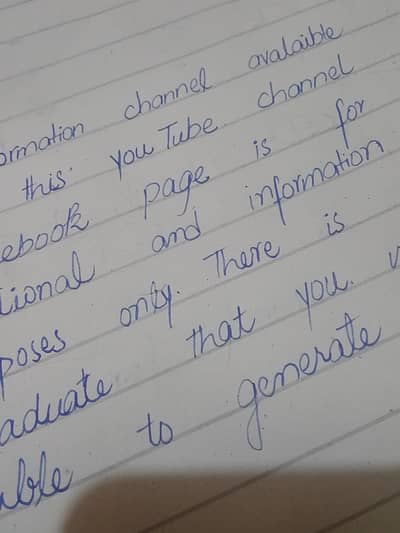 ormation channel avalaible
this youTube channel
ebook page is for
tional and information
poses only. There is
aduate that you. w
able to generate